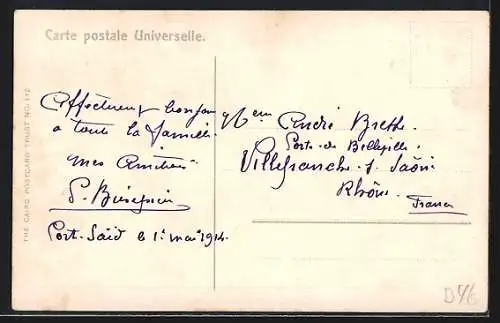 Carte postale Universelle.
THE CAIRO POSTCARD TRUST NO. 112
Affectueux bonjour
a toute la famille
mes Amitiés
Port-Saïd le 1er mai 1914.
André
Porte de Belleville
Villefranche s. Saône
Rhône
France